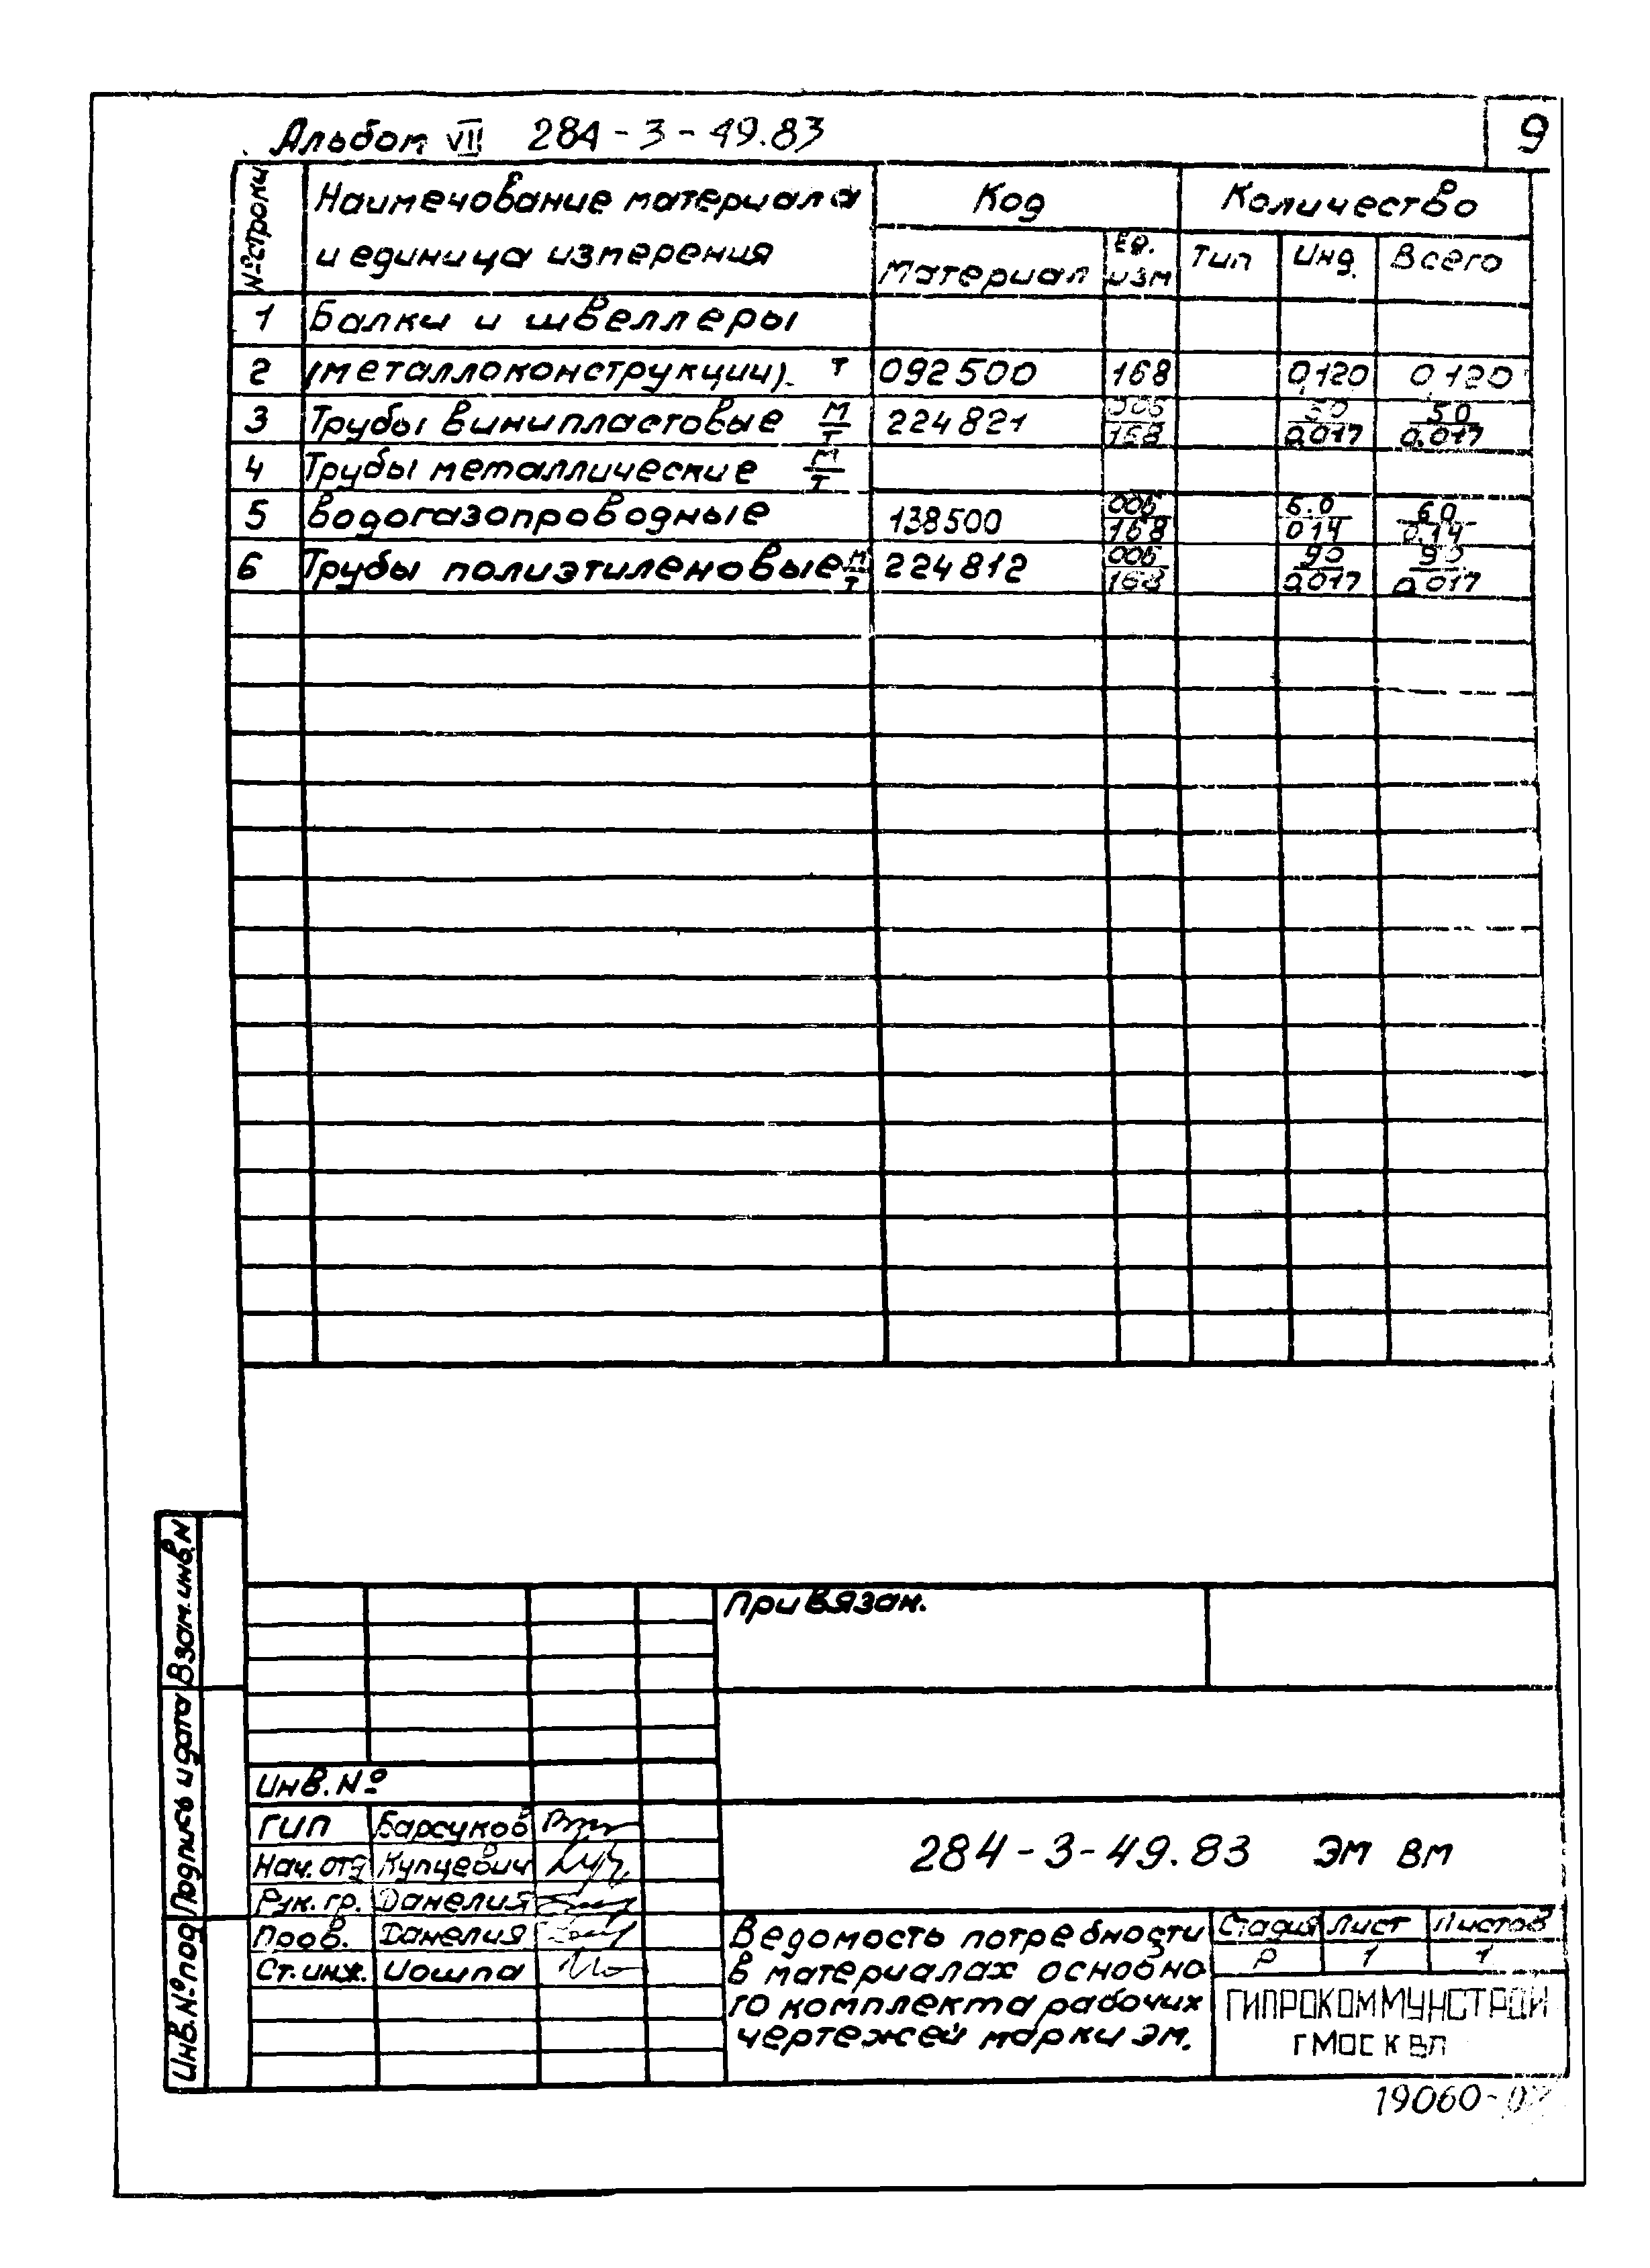 Альбом VII 284-3-49.83
9
№ строки
Наименование материала и единица измерения
Код
Количество
Материал
Ед. изм
Тип
Инд.
Всего
1 Балки и швеллеры
2 (металлоконструкции). т 092500 168 0,120 0,120
3 Трубы винипластовые м/т 224821 006/168 50/0.017 50/0.017
4 Трубы металлические м/т
5 водогазопроводные 138500 006/168 6.0/0.14 6.0/0.14
6 Трубы полиэтиленовые м/т 224812 006/168 90/0.017 90/0.017
Взам. инв. N
Подпись и дата
Инв. № под
Привязан.
Инв. №
ГИП Барсуков
Нач. отд Купцевич
Рук. гр. Данелия
Пров. Данелия
Ст. инж. Иошпа
284-3-49.83 ЭМ ВМ
Ведомость потребности
в материалах основно
го комплекта рабочих
чертежей марки ЭМ.
Стадия Лист Листов
Р 1 1
ГИПРОКОММУНСТРОЙ
г МОСКВА
19060-